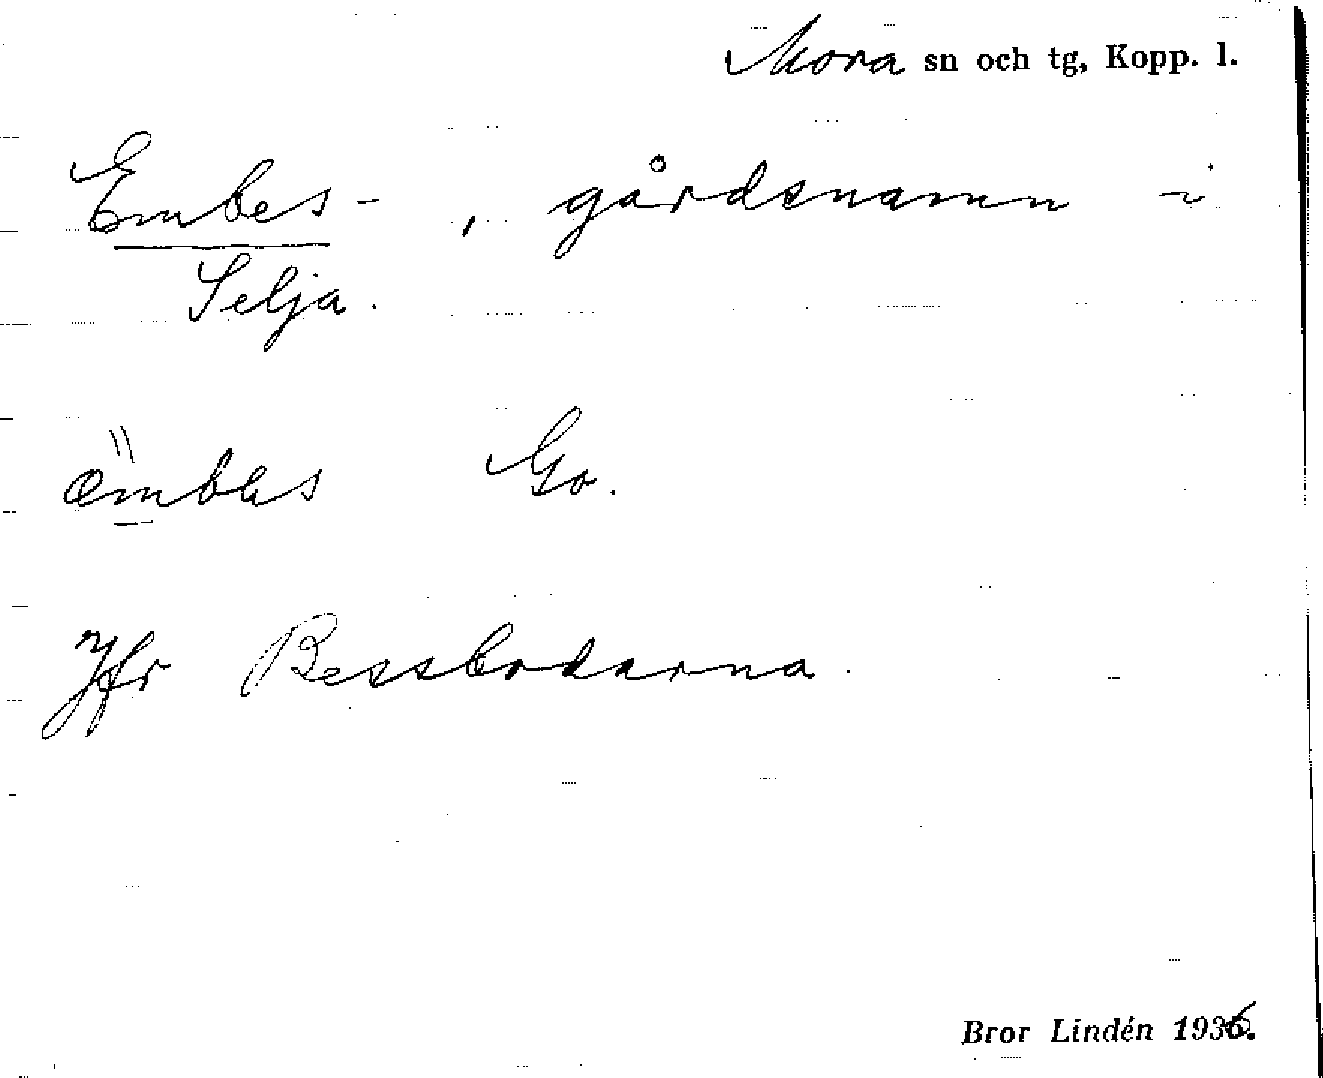 Mora sn och tg, Kopp. l.
Embes- , gårdsnamn i
Selja.
Go.
Jfr Bessbodarna.
Bror Lindén 1936.